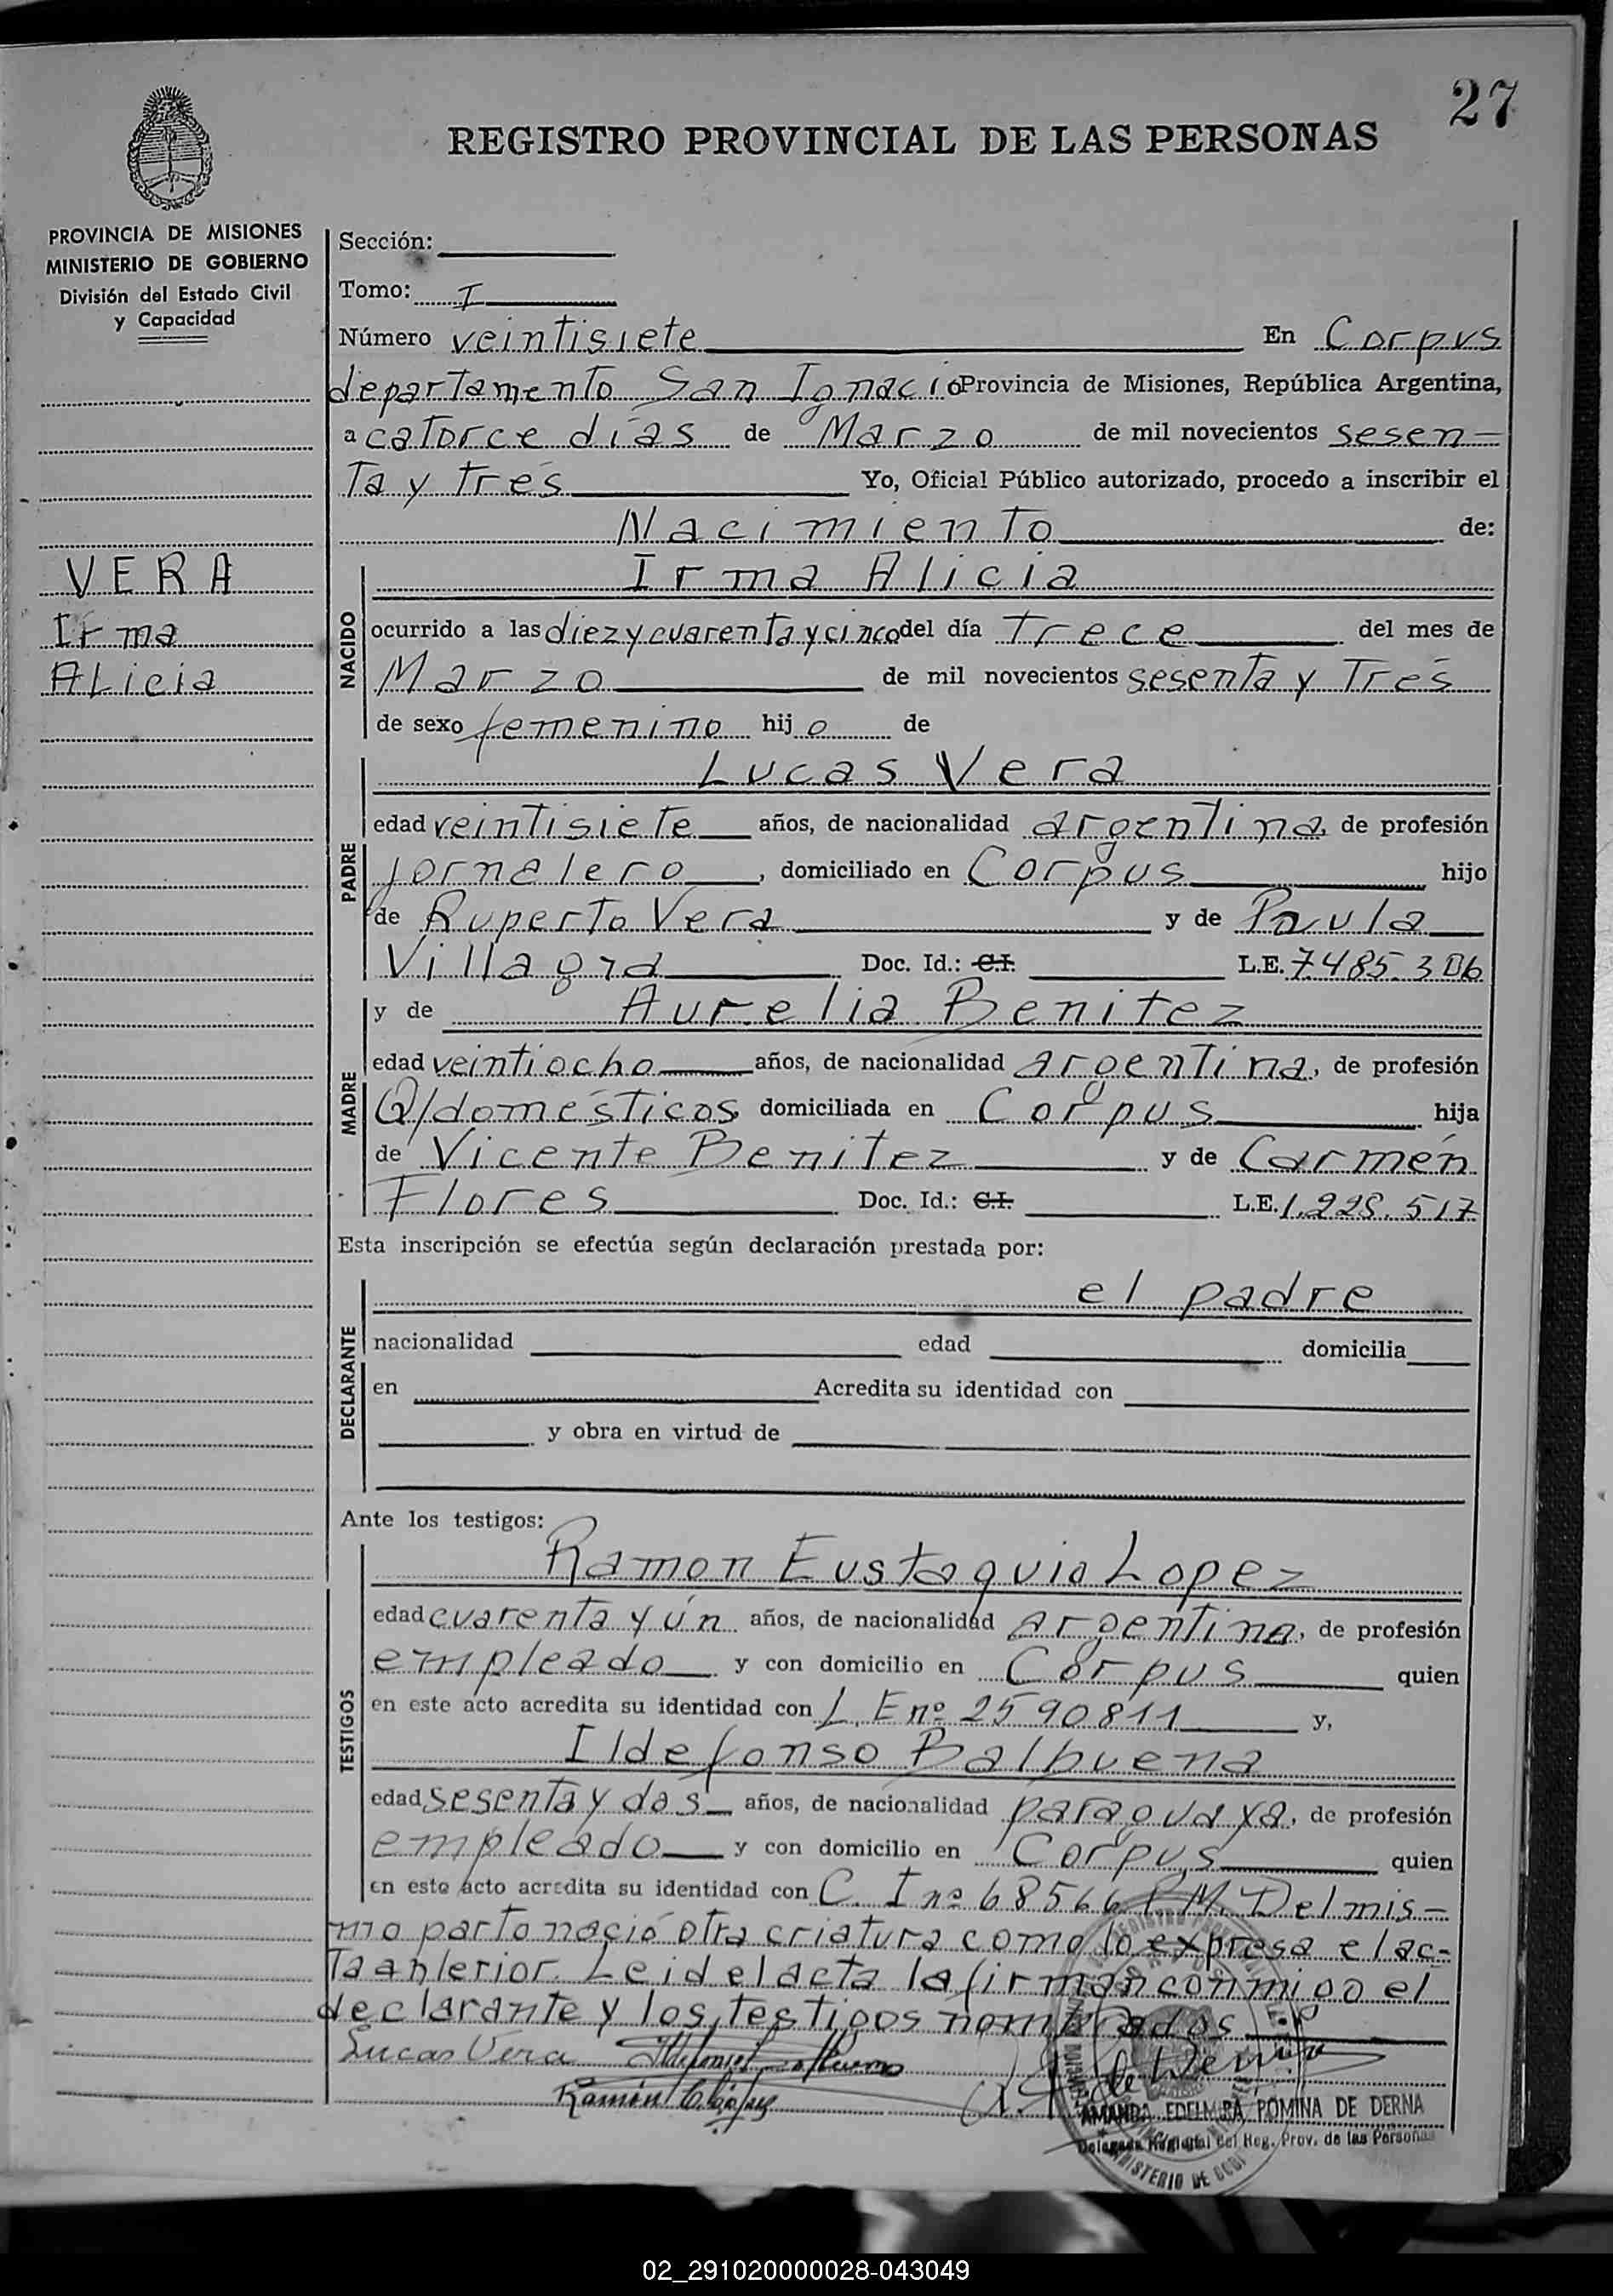 27
REGISTRO PROVINCIAL DE LAS PERSONAS
PROVINCIA DE MISIONES
MINISTERIO DE GOBIERNO
División del Estado Civil
y Capacidad
VERA
Irma
Alicia
Sección:
Tomo: I
Número veintisiete En Corpus
departamento San Ignacio Provincia de Misiones, República Argentina,
a catorce días de Marzo de mil novecientos sesen-
ta y tres Yo, Oficial Público autorizado, procedo a inscribir el
Nacimiento de:
NACIDO
Irma Alicia
ocurrido a las diez y cuarenta y cinco del día trece del mes de
Marzo de mil novecientos sesenta y tres
de sexo femenino hijo de
PADRE
Lucas Vera
edad veintisiete años, de nacionalidad argentina, de profesión
jornalero, domiciliado en Corpus hijo
de Ruperto Vera y de Paula
Villagra Doc. Id.: C.I. L.E. 7.485.306
MADRE
y de Aurelia Benitez
edad veintiocho años, de nacionalidad argentina, de profesión
Q/domésticos domiciliada en Corpus hija
de Vicente Benitez y de Carmén
Flores Doc. Id.: C.I. L.E. 1.228.517
Esta inscripción se efectúa según declaración prestada por:
DECLARANTE
el padre
nacionalidad edad domicilia
en Acredita su identidad con
y obra en virtud de
Ante los testigos:
TESTIGOS
Ramon Eustaquio Lopez
edad cuarenta y ún años, de nacionalidad argentina, de profesión
empleado y con domicilio en Corpus quien
en este acto acredita su identidad con L.E nº 2590811 y,
Ildefonso Balbuena
edad sesenta y dos años, de nacionalidad paraguaya, de profesión
empleado y con domicilio en Corpus quien
en este acto acredita su identidad con C. I nº 68566 P.M. Del mis-
mo parto nació otra criatura como lo expresa el ac-
ta anterior. Leid el acta la firman conmigo el
declarante y los testigos nombrados
Lucas Vera Ildefonso Balbuena
Ramón
AMANDA EDELMIRA POMINA DE DERNA
Delegada Regional del Reg. Prov. de las Personas
MINISTERIO DE GOBI
02_291020000028-043049